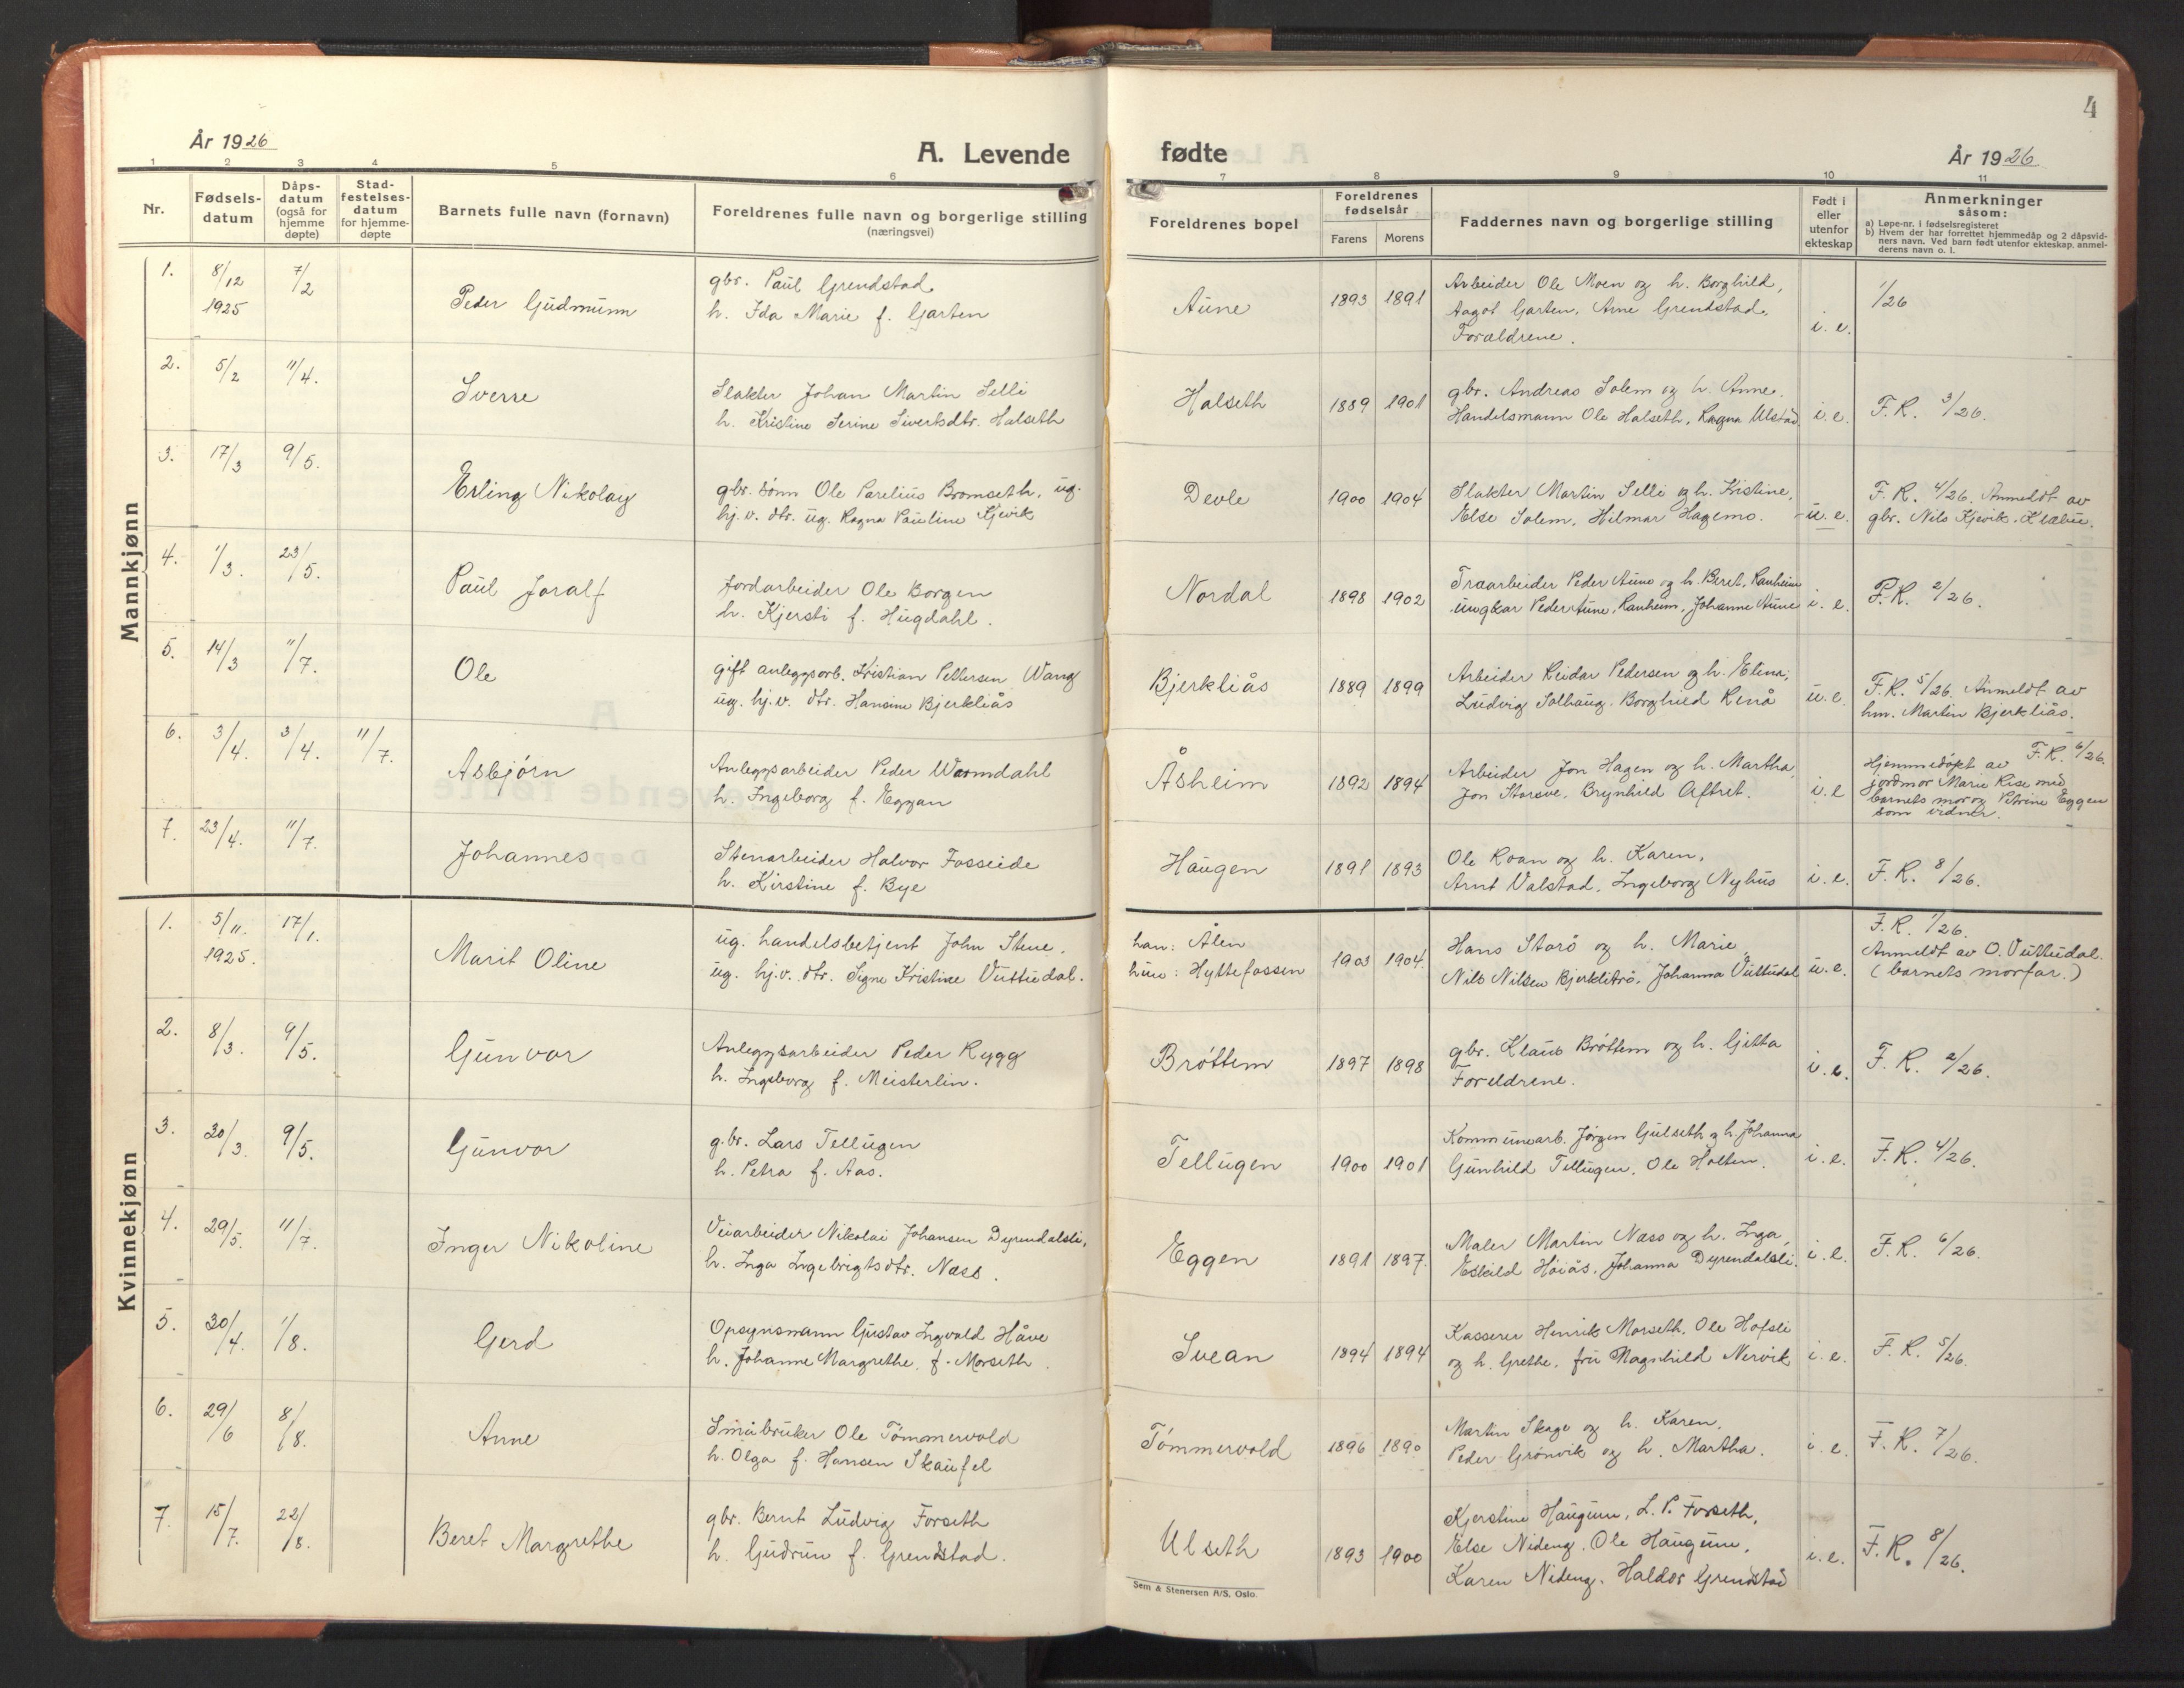 4
År 1926
A. Levende
fødte
År 1926
1 2 3 4 5 6 7 8 9 10 11
Nr.
Fødselsdatum
Dåpsdatum (også for hjemmedøpte)
Stadfestelsesdatum for hjemmedøpte
Barnets fulle navn (fornavn)
Foreldrenes fulle navn og borgerlige stilling (næringsvei)
Foreldrenes bopel
Foreldrenes fødselsår
Farens Morens
Faddernes navn og borgerlige stilling
Født i eller utenfor ekteskap
Anmerkninger såsom:
a) Løpe-nr. i fødselsregisteret
b) Hvem der har forrettet hjemmedåp og 2 dåpsvidners navn. Ved barn født utenfor ekteskap, anmelderens navn o. l.
Mannkjønn
1. 8/12 1925 7/2
Peder Gudmunn
gbr. Paul Grendstad
h. Ida Marie f. Garten
Aune
1893 1891
Arbeider Ole Moen og h. Borghild,
Aagot Garten, Arne Grendstad,
Forældrene.
i. e.
1/26
2. 5/2 11/4.
Sverre
Slakter Johan Martin Selli
h. Kristine Serine Sivertsdtr. Halseth
Halseth
1889 1901
gbr. Andreas Solem og h. Anne,
Handelsmann Ole Halseth, Ragna Ulstad
i. e.
F.R. 3/26.
3. 17/3 9/5.
Erling Nikolay
gbr. sønn Ole Parelius Bromseth, ug.
hj. v. dtr. ug. Ragna Pauline Kjevik
Devle
1900 1904
Slakter Martin Selli og h. Kristine,
Else Solem, Hilmar Hagemo.
u. e.
F. R. 4/26. Anmeldt av
gbr. Nils Kjevik, Klæbu.
4. 1/3. 23/5.
Paul Joralf
Jordarbeider Ole Borgen
h. Kjersti f. Hugdahl.
Nordal
1898 1902
Traarbeider Peder Aune og h. Beret, Ranheim
ungkar Peder Aune, Ranheim, Johanne Aune
i. e.
F.R. 2/26.
5. 14/3 11/7.
Ole
gift anleggsarb. Kristian Pettersen Wang
ug. hj. v. dtr. Hansine Bjerkliås
Bjerkliås
1889 1899
Arbeider Reidar Pedersen og h. Elina,
Ludvig Solhaug, Borghild Renå
u. e.
F.R. 5/26. Anmeldt av
hm. Martin Bjerkliås.
6. 3/4. 3/4. 11/7.
Asbjørn
Anleggsarbeider Peder Warmdahl
h. Ingeborg f. Eggan
Åsheim
1892 1894
Arbeider Jon Hagen og h. Martha,
Jon Storsve, Brynhild Aftret.
i. e
F.R. 6/26.
Hjemmedøpt av
jordmor Marie Rise med
barnets mor og Petrine Eggen
som vidner.
7. 23/4. 11/7.
Johannes
Stenarbeider Halvor Fosseide
h. Kirstine f. Bye
Haugen
1891 1893
Ole Roan og h. Karen,
Arnt Valstad, Ingeborg Nyhus
i. e.
F. R. 8/26.
Kvinnekjønn
1. 5/11. 1925. 17/1.
Marit Oline
ug. handelsbetjent John Stene,
ug. hj. v. dtr. Signe Kristine Vuttudal.
han: Ålen
hun: Hyttefossen
1903 1904
Hans Storö og h. Marie,
Nils Nilsen Bjerklitrø, Johanna Vuttudal
u. e.
F. R. 1/26.
Anmeldt av O. Vuttudal.
(barnets morfar.)
2. 8/3. 9/5.
Gunvor
Anleggsarbeider Peder Rygg
h. Ingeborg f. Meisterlin.
Brøttem
1897 1898
gbr. Klaus Brøttem og h. Gitta
Foreldrene.
i. e.
F. R. 2/26.
3. 20/3. 9/5.
Gunvor
g.br. Lars Tellugen
h. Petra f. Aas.
Tellugen
1900 1901
Kommunearb. Jørgen Gulseth og h. Johanna
Gunhild Tellugen, Ole Holten.
i. e.
F. R. 4/26.
4. 29/5. 11/7.
Inger Nikoline
Veiarbeider Nikolai Johansen Dyrendalsli,
h. Inga Ingebrigtsdtr. Næss.
Eggen
1891 1897.
Maler Martin Næss og h. Inga,
Eskild Høiås, Johanna Dyrendalsli.
i. e.
F. R. 6/26.
5. 30/4. 1/8.
Gerd
Opsynsmann Gustav Ingvald Håve
h. Johanne Margrethe, f. Morseth.
Svean
1894 1894
Kasserer Henrik Morseth, Ole Hofsli
og h. Grethe, fru Magnhild Nervik
i. e.
F. R. 5/26.
6. 29/6 8/8.
Anne
Småbruker Ole Tømmervold
h. Olga f. Hansen Skaufel
Tømmervold
1896 1890
Martin Skage og h. Karen,
Peder Grönvik og h. Martha.
i. e.
F. R. 7/26.
7. 15/7. 22/8.
Beret Margrethe
gbr. Bernt Ludvig Forseth
h. Gudrun f. Grendstad.
Ulseth
1893 1900
Kjerstine Haugum, L. P. Forseth,
Else Nideng, Ole Haugum,
Karen Nideng, Haldor Grendstad
i. e.
F. R. 8/26.
Sem & Stenersen A/S. Oslo.